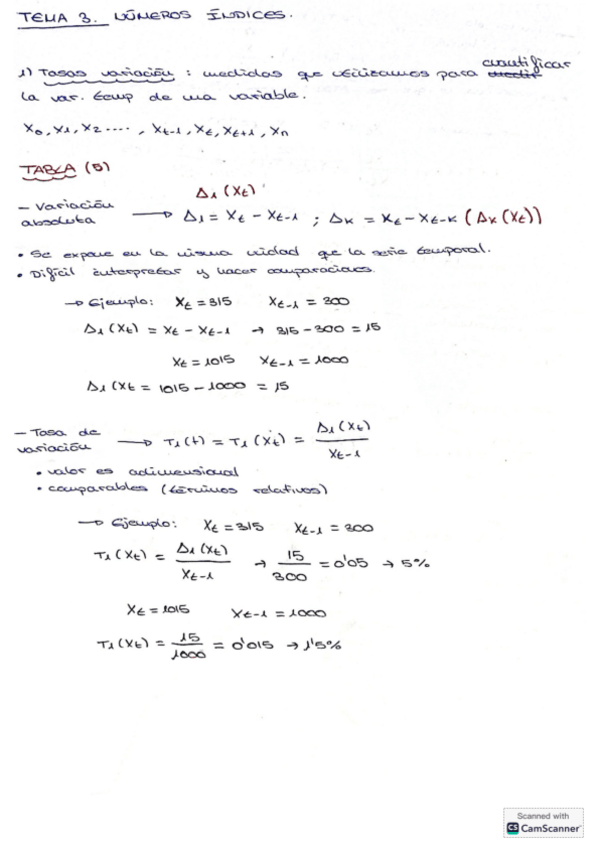 TEMA 3. NÚMEROS ÍNDICES.
cuantificar
1) Tasas variación : medidas que utilizamos para medir
la var. temp de una variable.
X₀, X₁, X₂ ...., Xt-1, Xt, Xt+1, Xn
TABLA (5)
Δ₁ (Xt)
- Variación absoluta → Δ₁ = Xt - Xt-1 ; Δk = Xt - Xt-k (Δk (Xt))
• Se expone en la misma unidad que la serie temporal.
• Difícil interpretar y hacer comparaciones.
→ Ejemplo: Xt = 315 Xt-1 = 300
Δ₁ (Xt) = Xt - Xt-1 → 315 - 300 = 15
Xt = 1015 Xt-1 = 1000
Δ₁ (Xt = 1015 - 1000 = 15
- Tasa de variación → T₁(t) = T₁(Xt) = Δ₁(Xt) / Xt-1
• valor es adimensional
• comparables (términos relativos)
→ Ejemplo: Xt = 315 Xt-1 = 300
T₁(Xt) = Δ₁(Xt) / Xt-1 → 15 / 300 = 0'05 → 5%
Xt = 1015 Xt-1 = 1000
T₁(Xt) = 15 / 1000 = 0'015 → 1'5%
Scanned with
CS CamScanner